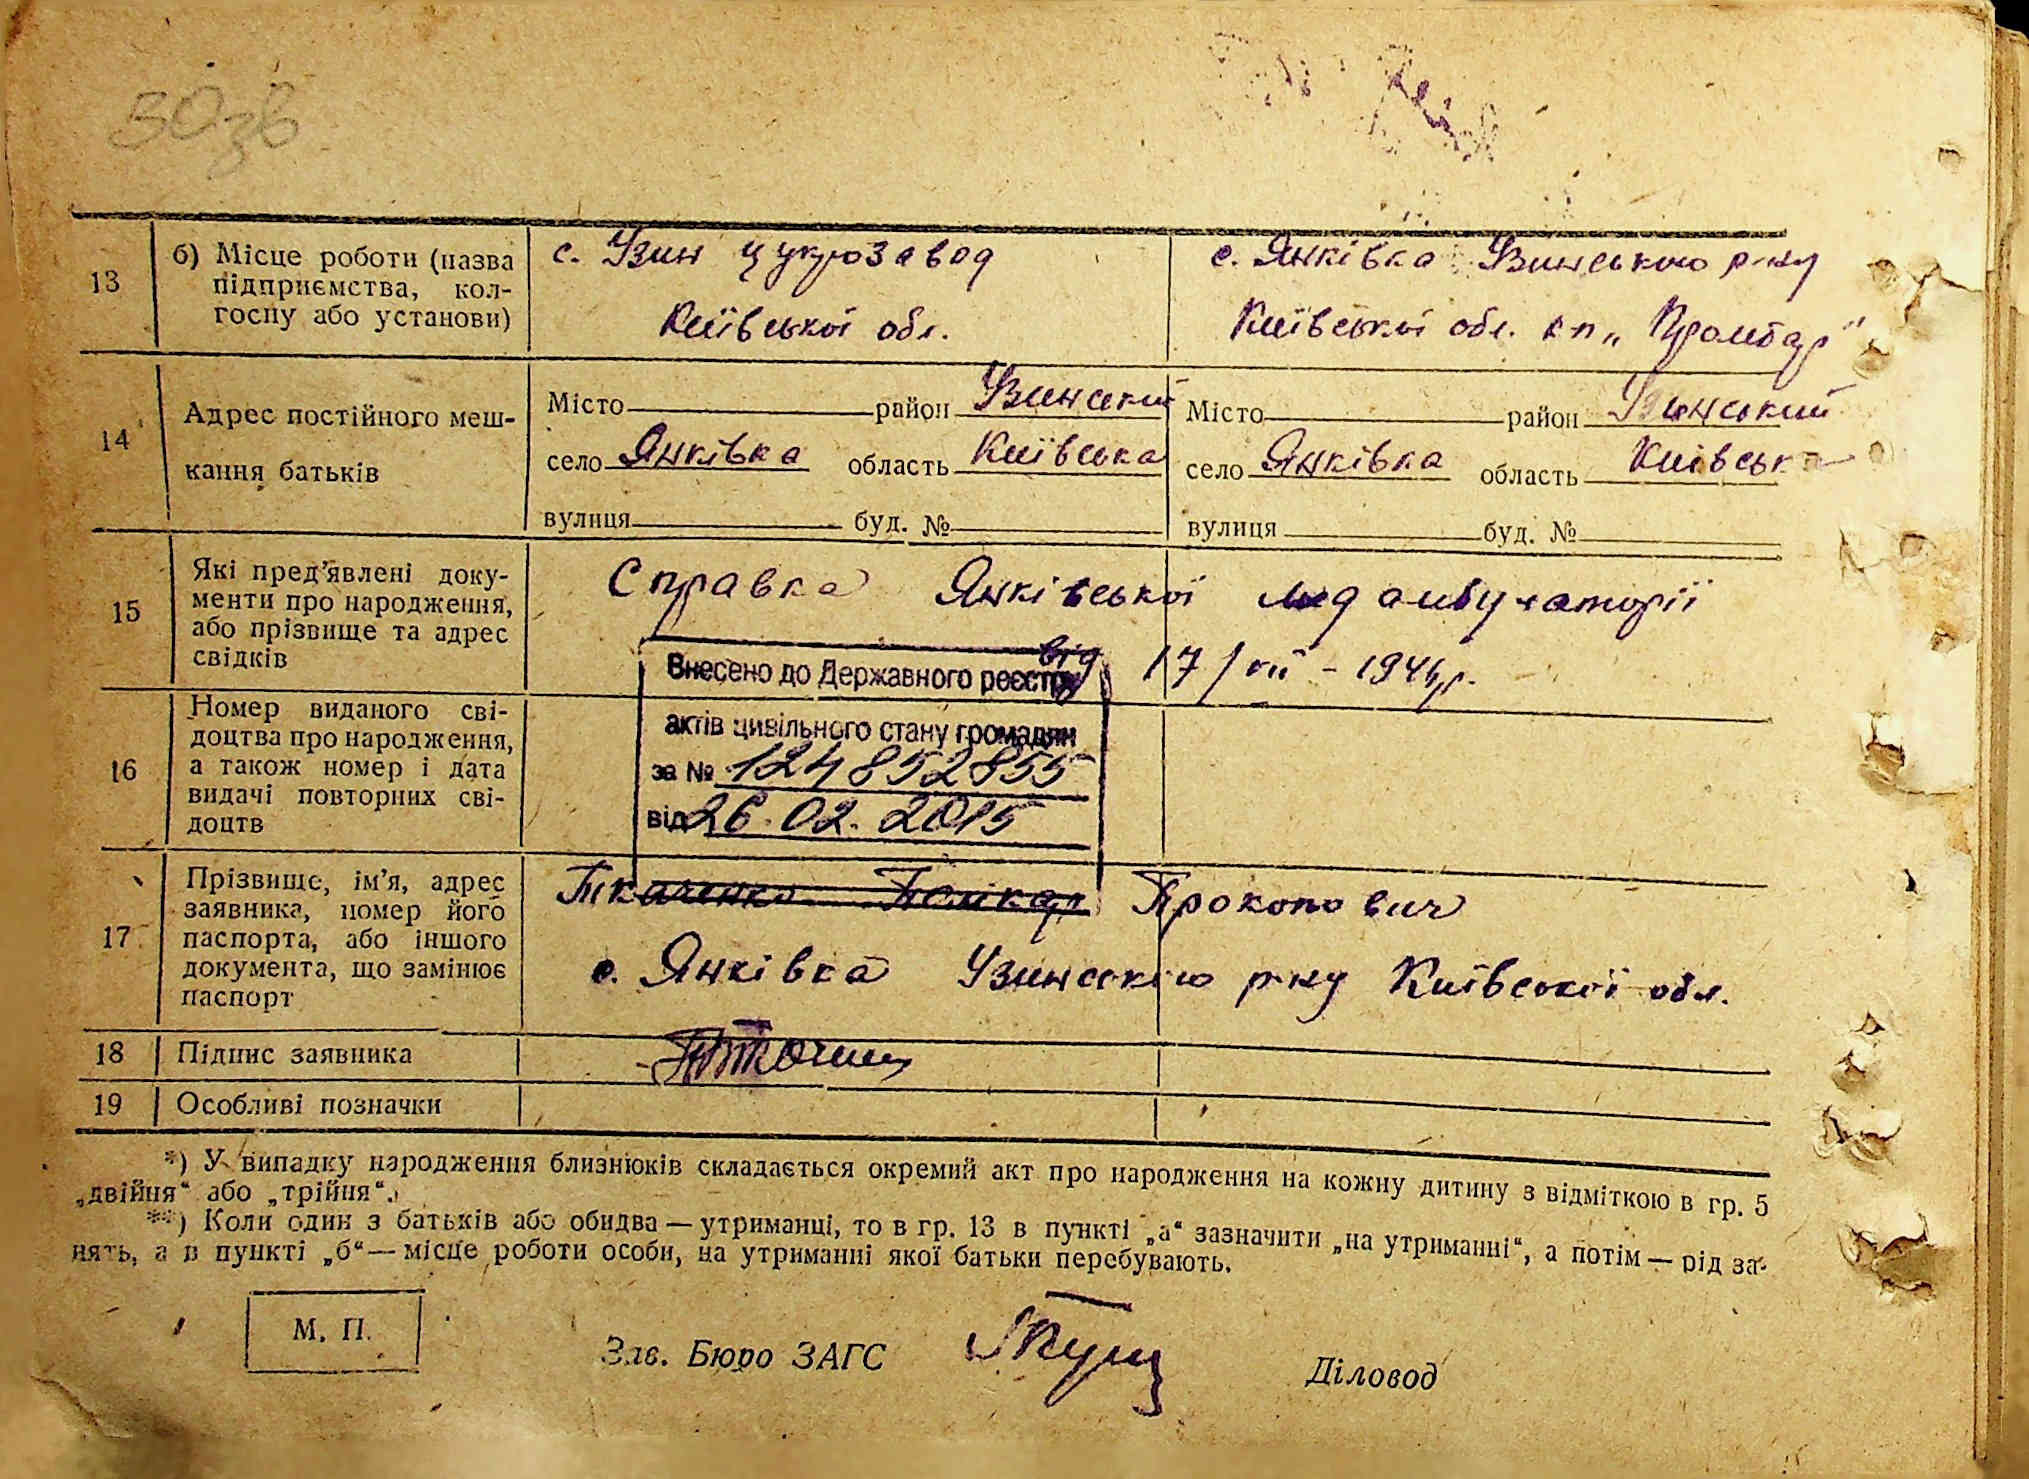 50зв
13
б) Місце роботи (назва
підприємства, кол-
госпу або установи)
с. Узин цукрозавод
Київської обл.
с. Янківка Узинського р-ну
Київської обл. к-п „Промбар"
14
Адрес постійного меш-
кання батьків
Місто район Узинський
село Янківка область Київська
вулиця буд. №
Місто район Узинський
село Янківка область Київська
вулиця буд. №
15
Які пред'явлені доку-
менти про народження,
або прізвище та адрес
свідків
Справка Янківської мед амбулаторії
від 17/VII - 1944р.
Внесено до Державного реєстру
актів цивільного стану громадян
за № 124852855
від 26.02.2015
16
Номер виданого сві-
доцтва про народження,
а також номер і дата
видачі повторних сві-
доцтв
17
Прізвище, ім'я, адрес
заявника, номер його
паспорта, або іншого
документа, що замінює
паспорт
Ткаченко Прокопович
с. Янківка Узинського р-ну Київської обл.
18
Підпис заявника
19
Особливі позначки
*) У випадку народження близнюків складається окремий акт про народження на кожну дитину з відміткою в гр. 5
„двійня“ або „трійня“.
**) Коли один з батьків або обидва — утриманці, то в гр. 13 в пункті „а“ зазначити „на утриманні“, а потім — рід за-
нять, а в пункті „б“ — місце роботи особи, на утриманні якої батьки перебувають.
М. П.
Зав. Бюро ЗАГС
Діловод